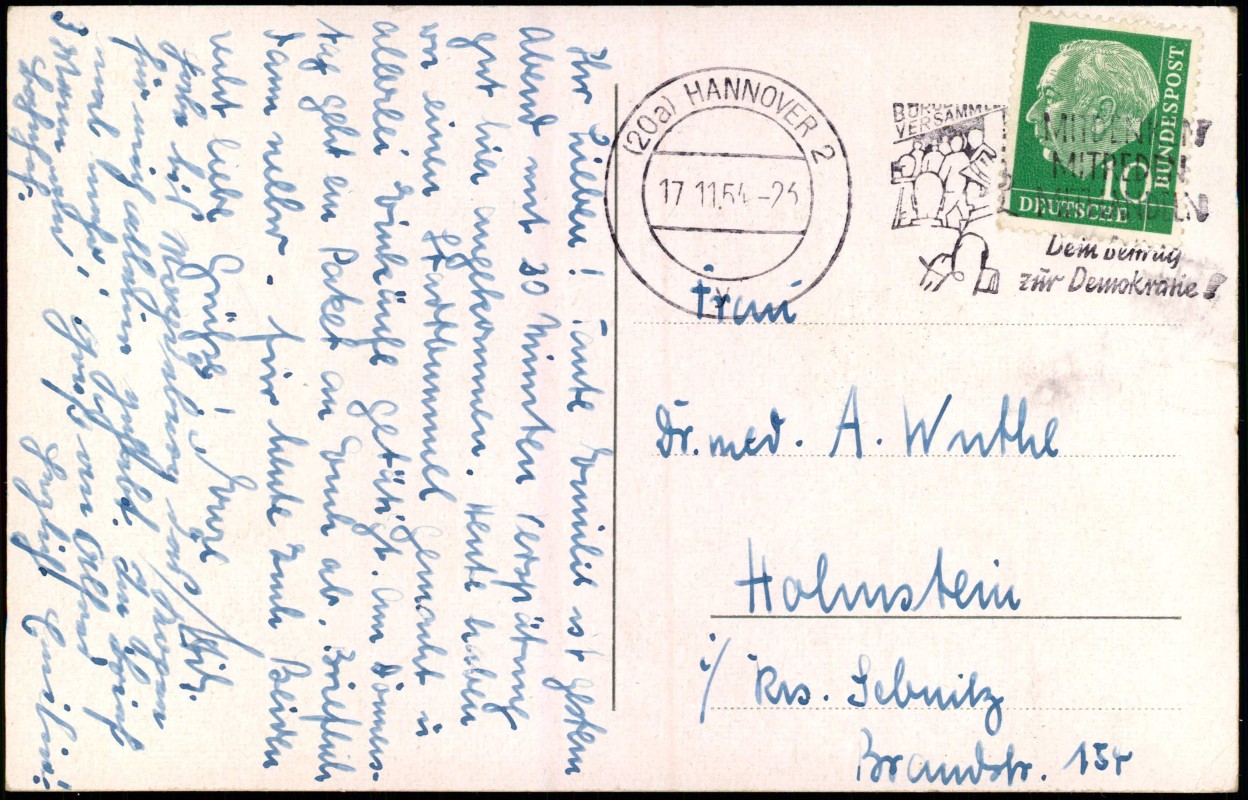 Ihr Lieben! Tante Emilie ist gestern
Abend mit 30 Minuten Verspätung
gut hier angekommen. Heute haben
wir einen Stadtbummel gemacht u
allerlei Einkäufe getätigt. Am Donners-
tag geht ein Paket an Euch ab. Brieflich
dann mehr. Für heute Euch Beiden
recht liebe Grüße! Eure
Habe bis Magdeburg das
für mich allein gehabt. In
mal mehr! Gruß an
3 Mann
Herzlichst Emilie!
(20a) HANNOVER 2
17.11.54.-23
BÜRGER
VERSAMML
MITDENKEN
MITREDEN
Dein Beitrag
zur Demokratie!
DEUTSCHE
BUNDESPOST
10
Frau
Dr. med. A. Wuthe
Holmstein
i/ Krs. Sebnitz
Brandstr. 15